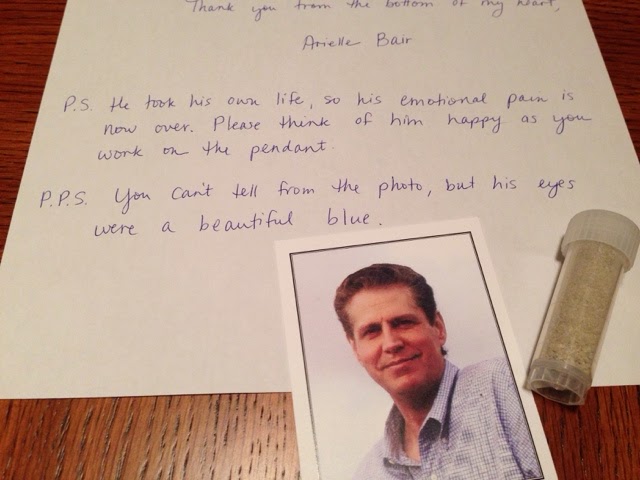 Thank you from the bottom of my heart,
Arielle Bair
P.S. He took his own life, so his emotional pain is
now over. Please think of him happy as you
work on the pendant.
P.P.S. You can't tell from the photo, but his eyes
were a beautiful blue.